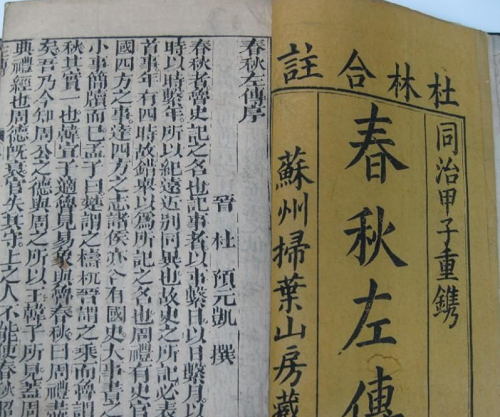 杜林合註
同治甲子重鐫
春秋左傳
蘇州掃葉山房藏
春秋左傳序
晉 杜 預元凱 撰
春秋者魯史記之名也記事者以事繫日以日繫月以
時以時繫年所以紀遠近別同異也故史之所記必表
首事年有四時故錯舉以為所記之名也周禮有史官
國四方之事達四方之志諸侯亦各有國史大事書之
小事簡牘而已孟子曰楚謂之檮杌晉謂之乘而魯謂
秋其實一也韓宣子適魯見易象與魯春秋曰周禮盡
矣吾乃今知周公之德與周之所以王韓子所見蓋周
典禮經也周德既衰官失其守上之人不能使春秋昭